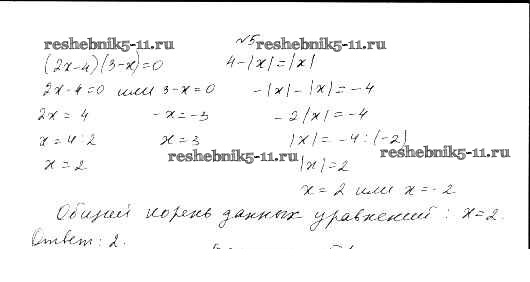 reshebnik5-11.ru №5 reshebnik5-11.ru
(2x-4)(3-x)=0 4-|x|=|x|
2x-4=0 или 3-x=0 -|x|-|x|=-4
2x=4 -x=-3 -2|x|=-4
x=4:2 x=3 |x|=-4:(-2)
reshebnik5-11.ru reshebnik5-11.ru
x=2 |x|=2
x=2 или x=-2
Общий корень данных уравнений: x=2.
Ответ: 2.